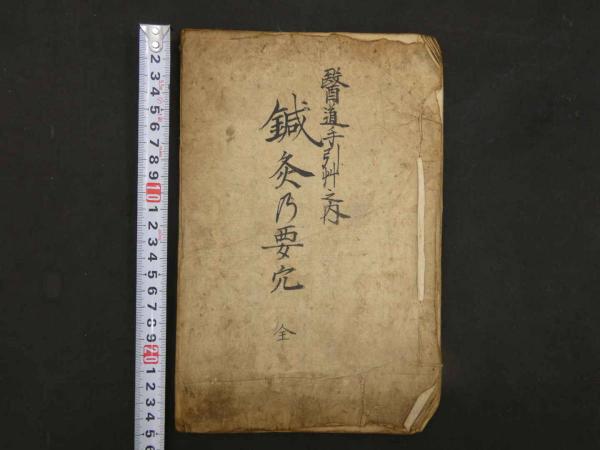 醫道手引艸之内
鍼灸乃要穴
全
2
3
4
5
6
7
8
9
10
1
2
3
4
5
6
7
8
9
20
1
2
3
4
5
6